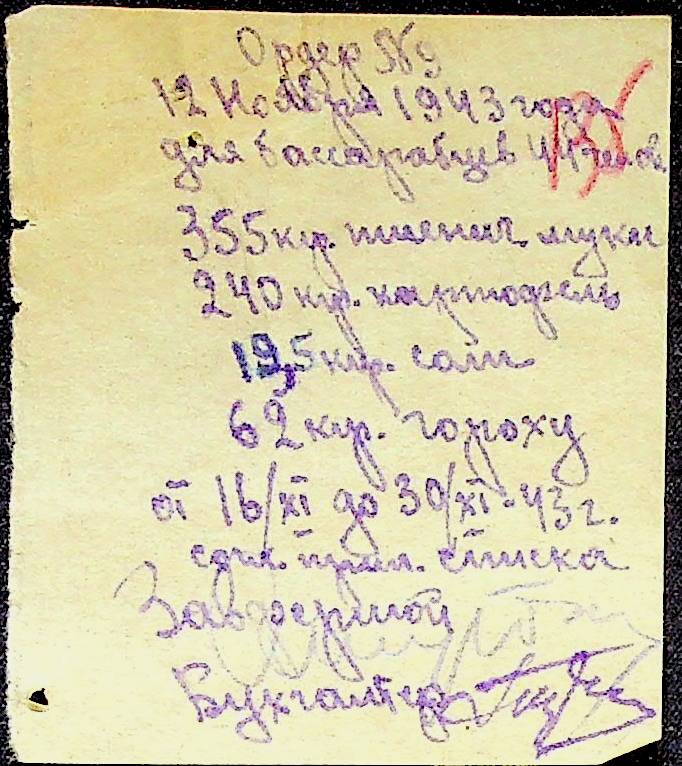 Ордер № 9
12 Ноября 1943 года
для бассарабцев 44 челов.
355 кгр. пшенич. муки
240 кгр. картофель
19,5 кгр. соли
62 кгр. гороху
от 16/XI до 30/XI-43 г.
согл. прил. списка
Завфермой
Бухгалтер